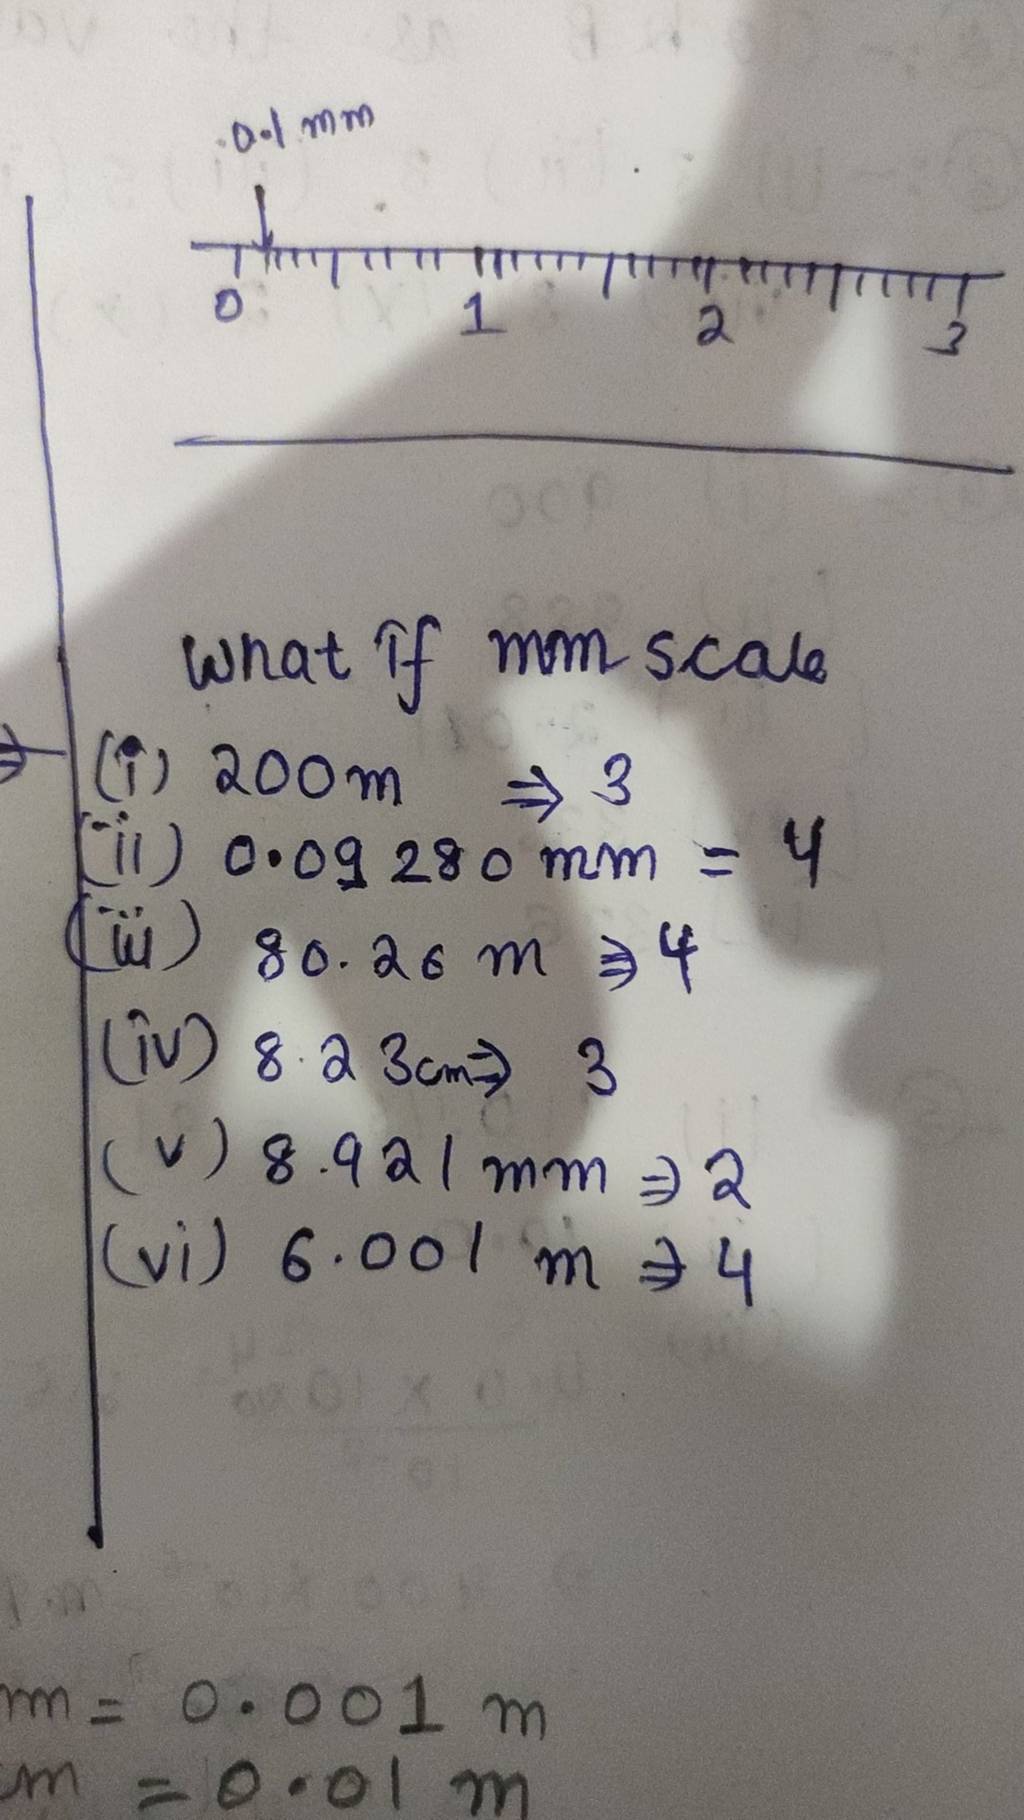 0.1 mm
0 1 2 3
What if mm scale
⇒ (i) 200m ⇒ 3
(ii) 0.09280 mm = 4
(iii) 80.26 m ⇒ 4
(iv) 8.23cm ⇒ 3
(v) 8.921 mm ⇒ 2
(vi) 6.001 m ⇒ 4
= 0.001 m
= 0.01 m